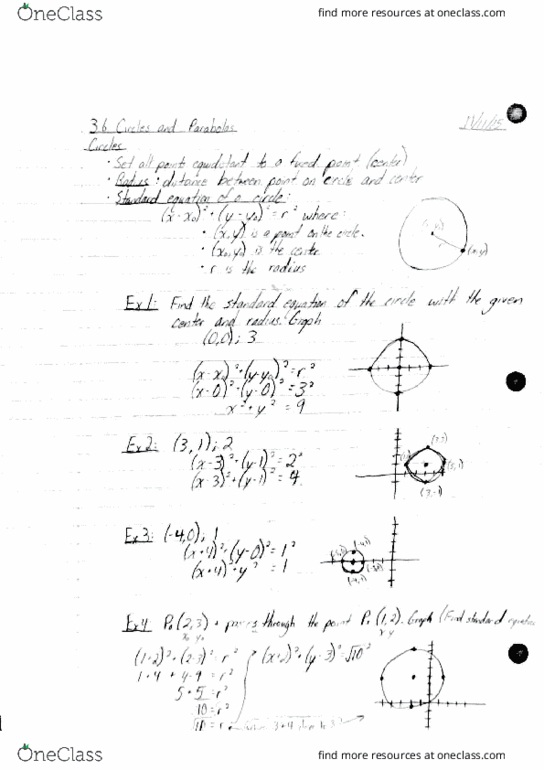 OneClass
find more resources at oneclass.com
3.6 Circles and Parabolas
Circles
• Set all points equidistant to a fixed point (center)
• Radius: distance between point on circle and center
• Standard equation of a circle:
(x-x₀)² + (y-y₀)² = r² where:
• (x,y) is a point on the circle.
• (x₀,y₀) is the center
• r is the radius
(x,y)
r
Ex 1: Find the standard equation of the circle with the given
center and radius. Graph
(0,0); 3
(x-x₀)² + (y-y₀)² = r²
(x-0)² + (y-0)² = 3²
x² + y² = 9
Ex 2: (3,1); 2
(x-3)² + (y-1)² = 2²
(x-3)² + (y-1)² = 4
Ex 3: (-4,0); 1
(x+4)² + (y-0)² = 1²
(x+4)² + y² = 1
Ex 4 P₀(2,3) + passes through the point P₁(1,2). Graph (Find standard
x₀ y₀
x y
(1+2)² + (2-3)² = r²
(x+2)² + (y-3)² = √10²
= r²
5 + 5 = r²
10 = r²
√10 = r
OneClass
find more resources at oneclass.com